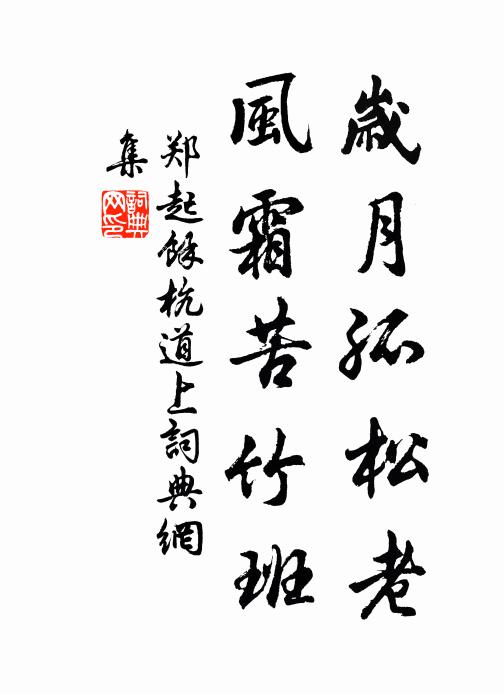 歲月孤松老
風霜苦竹班
郑起餘杭道上詞典網
集
詞典网印